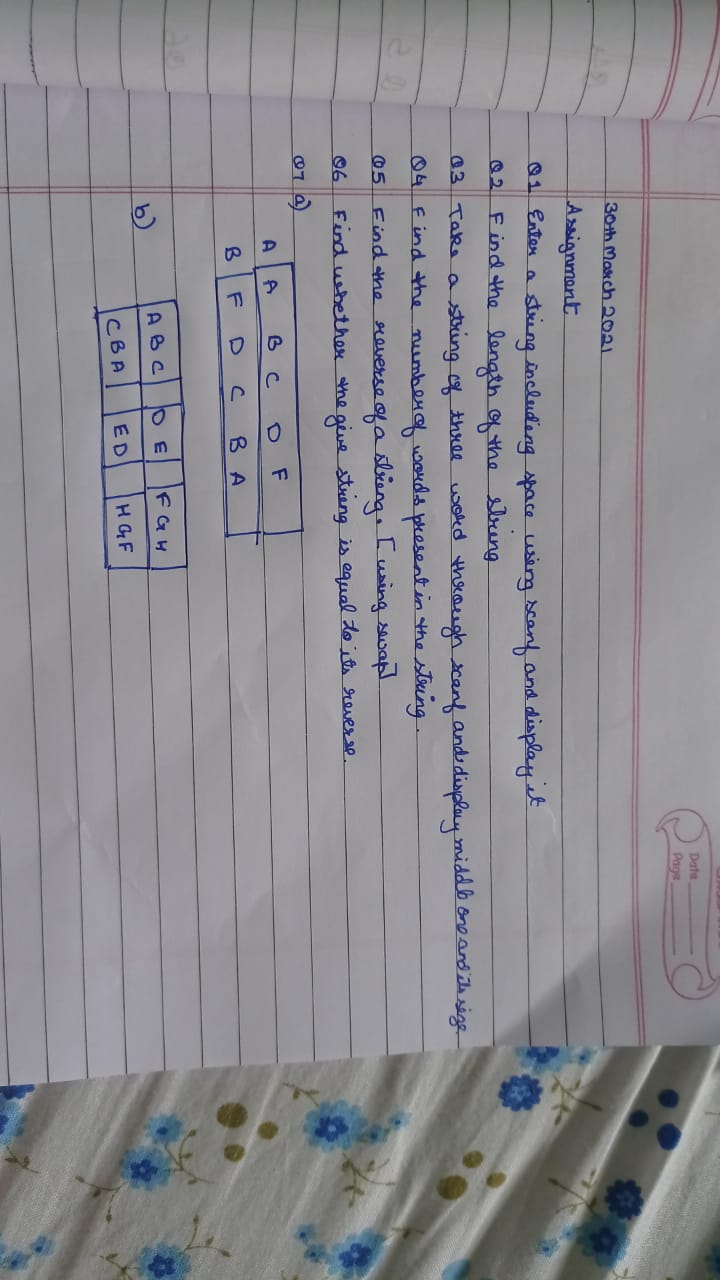 Date
Page
30th March 2021
Assignment
Q1 Enter a string including space using scanf and display it
Q2 Find the length of the string
Q3 Take a string of three word through scanf and display middle one and its size.
Q4 Find the number of words present in the string.
Q5 Find the reverse of a string. [using swap]
Q6 Find whether the give string is equal to its reverse.
Q7 a)
A A B C D F
B F D C B A
b)
ABC DE FGH
CBA ED HGF